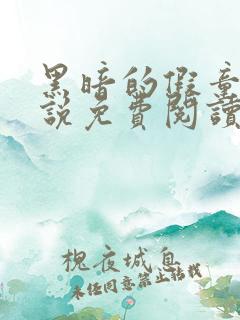 黑暗的假童
說免費閱讀
槐夜城息
未经同意禁止转载